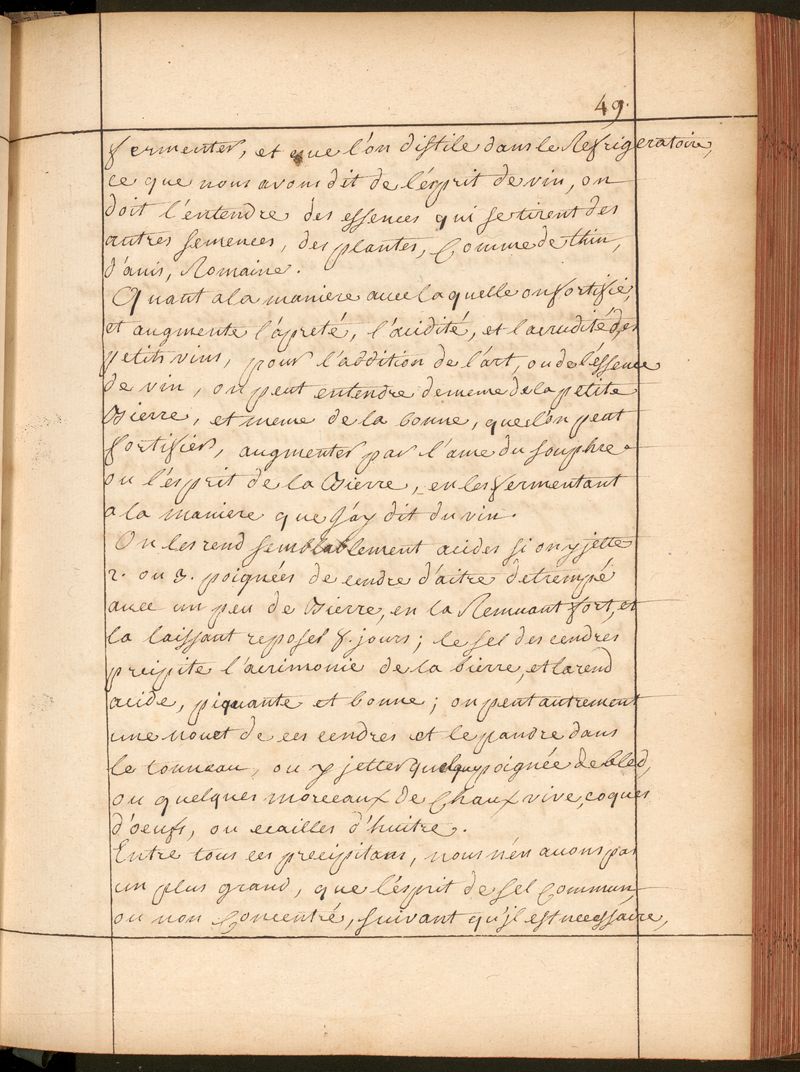 49.
fermenter, et que l'on distile dans le Refrigeratoire,
ce que nous avons dit de l'esprit de vin, on
doit l'entendre des essences qui se tirent des
autres semences, des plantes, Comme de thin,
d'anis, Romaine.
Quant a la maniere avec laquelle on fortifie,
et augmente l'apreté, l'acidité, et la crudité des
petits vins, pour l'addition de l'art, ou de l'essence
de vin, on peut entendre de meme de la petite
Bierre, et meme de la bonne, que l'on peut
fortifier, augmenter par l'ame du souphre
ou l'esprit de la Bierre, en les fermentant
a la maniere que j'ay dit du vin.
On les rend semblablement acides si on y jette
2. ou 3. poignées de cendre d'aitre detrempé
avec un peu de Bierre, en la Remuant fort, et
la laissant reposer 8. jours; le sel des cendres
precipite l'acrimonie de la bierre, et la rend
acide, piquante et bonne; on peut autrement
une nouet de ces cendres et le pandre dans
le tonneau, ou y jetter quelque poignée de bled,
ou quelques morceaux de Chaux vive, coques
d'oeufs, ou ecailles d'huitre.
Entre tous ces precipitans, nous n'en avons pas
un plus grand, que l'esprit de sel Commun
ou non Concentré, suivant qu'il est necessaire,